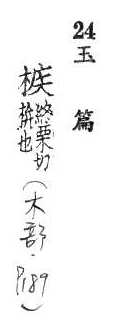 24 玉篇
槉 終栗切
栟也
(木部·P189)